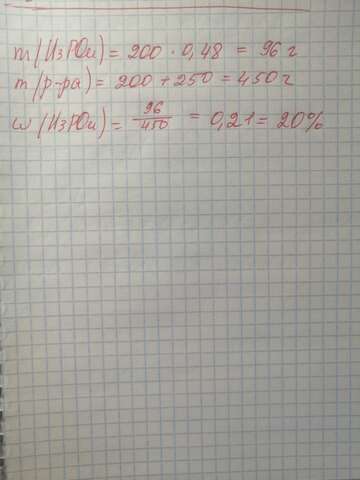 m(H₃PO₄) = 200 · 0,48 = 96 г
m(р-ра) = 200 + 250 = 450 г
ω(H₃PO₄) = 96/450 = 0,21 = 20%